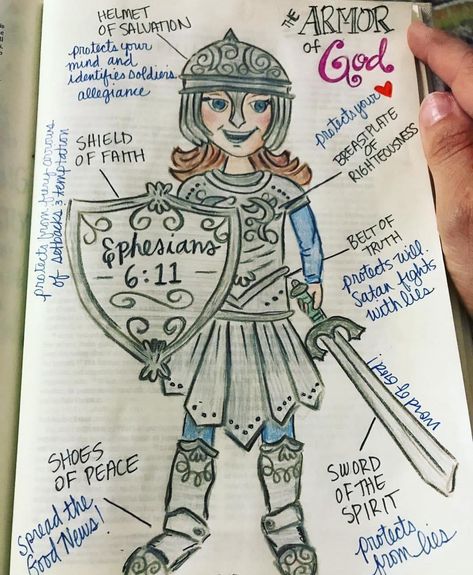 THE ARMOR
of God
HELMET
OF SALVATION
protects your
mind and
identifies soldiers
allegiance
protects your
BREASTPLATE
OF
RIGHTEOUSNESS
SHIELD
OF FAITH
protects from fiery arrows
of setbacks & temptation
Ephesians
6:11
BELT OF
TRUTH
protects will.
Satan fights
with lies
word of God!
SWORD
OF THE
SPIRIT
protects
from lies
SHOES
OF PEACE
Spread the
Good News!